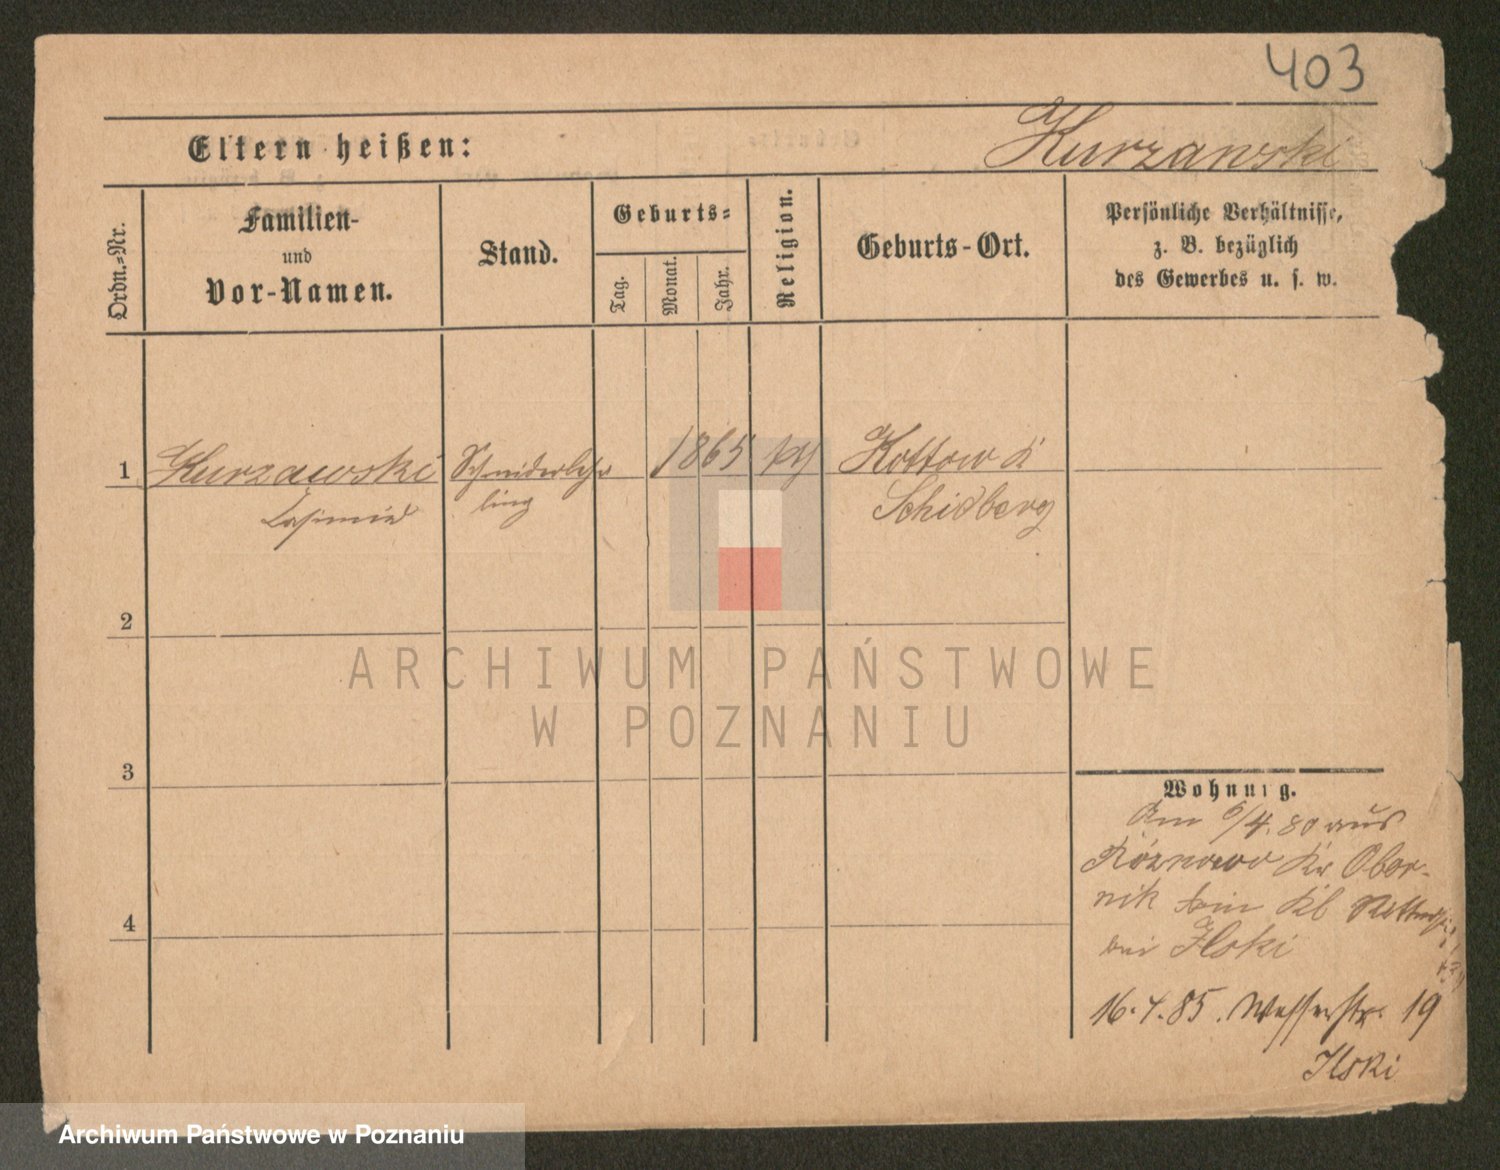 403
Eltern heißen:
Kurzawski
Ordn.-Nr.
Familien-
und
Vor-Namen.
Stand.
Geburts-
Tag.
Monat.
Jahr.
Religion.
Geburts-Ort.
Persönliche Verhältnisse,
z. B. bezüglich
des Gewerbes u. s. w.
1
Kurzawski
Casimir
Schneiderlehr
ling
1865
Kottow K
Schidberg
2
3
4
Wohnung.
Am 6/4. 80 aus
Róznowo Kr Obor-
nik Kl
bei Ilski
16. 4. 85. Wasserstr. 19
Ilski
ARCHIWUM PAŃSTWOWE
W POZNANIU
Archiwum Państwowe w Poznaniu